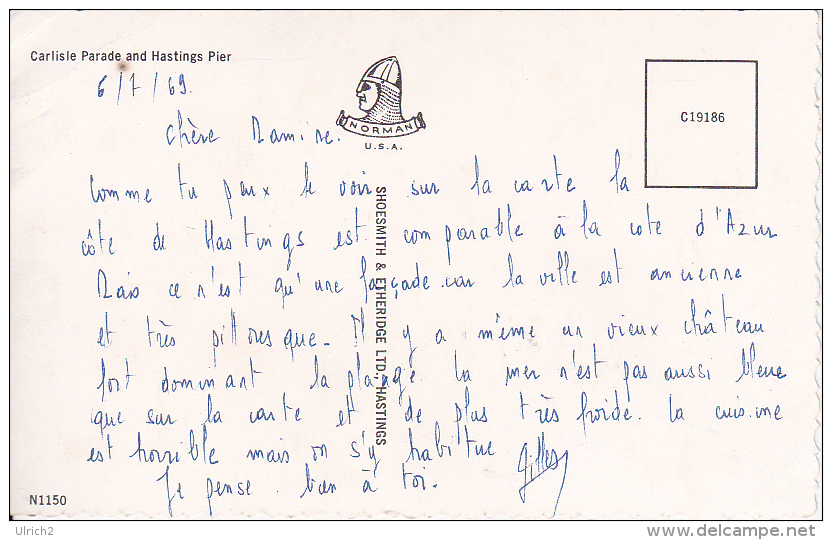 Carlisle Parade and Hastings Pier
6/7/69.
NORMAN
U.S.A.
C19186
Chère Mamine.
Comme tu peux le voir sur la carte la
côte de Hastings est comparable à la cote d'Azur
Mais ce n'est qu'une façade car la ville est ancienne
et très pittoresque. Il y a même un vieux château
fort dominant la plage. La mer n'est pas aussi bleue
que sur la carte et de plus très froide. La cuisine
est horrible mais on s'y habitue
Je pense bien à toi.
Gilles
SHOESMITH & ETHERIDGE LTD. HASTINGS
N1150
Ulrich2
www.delcampe.net